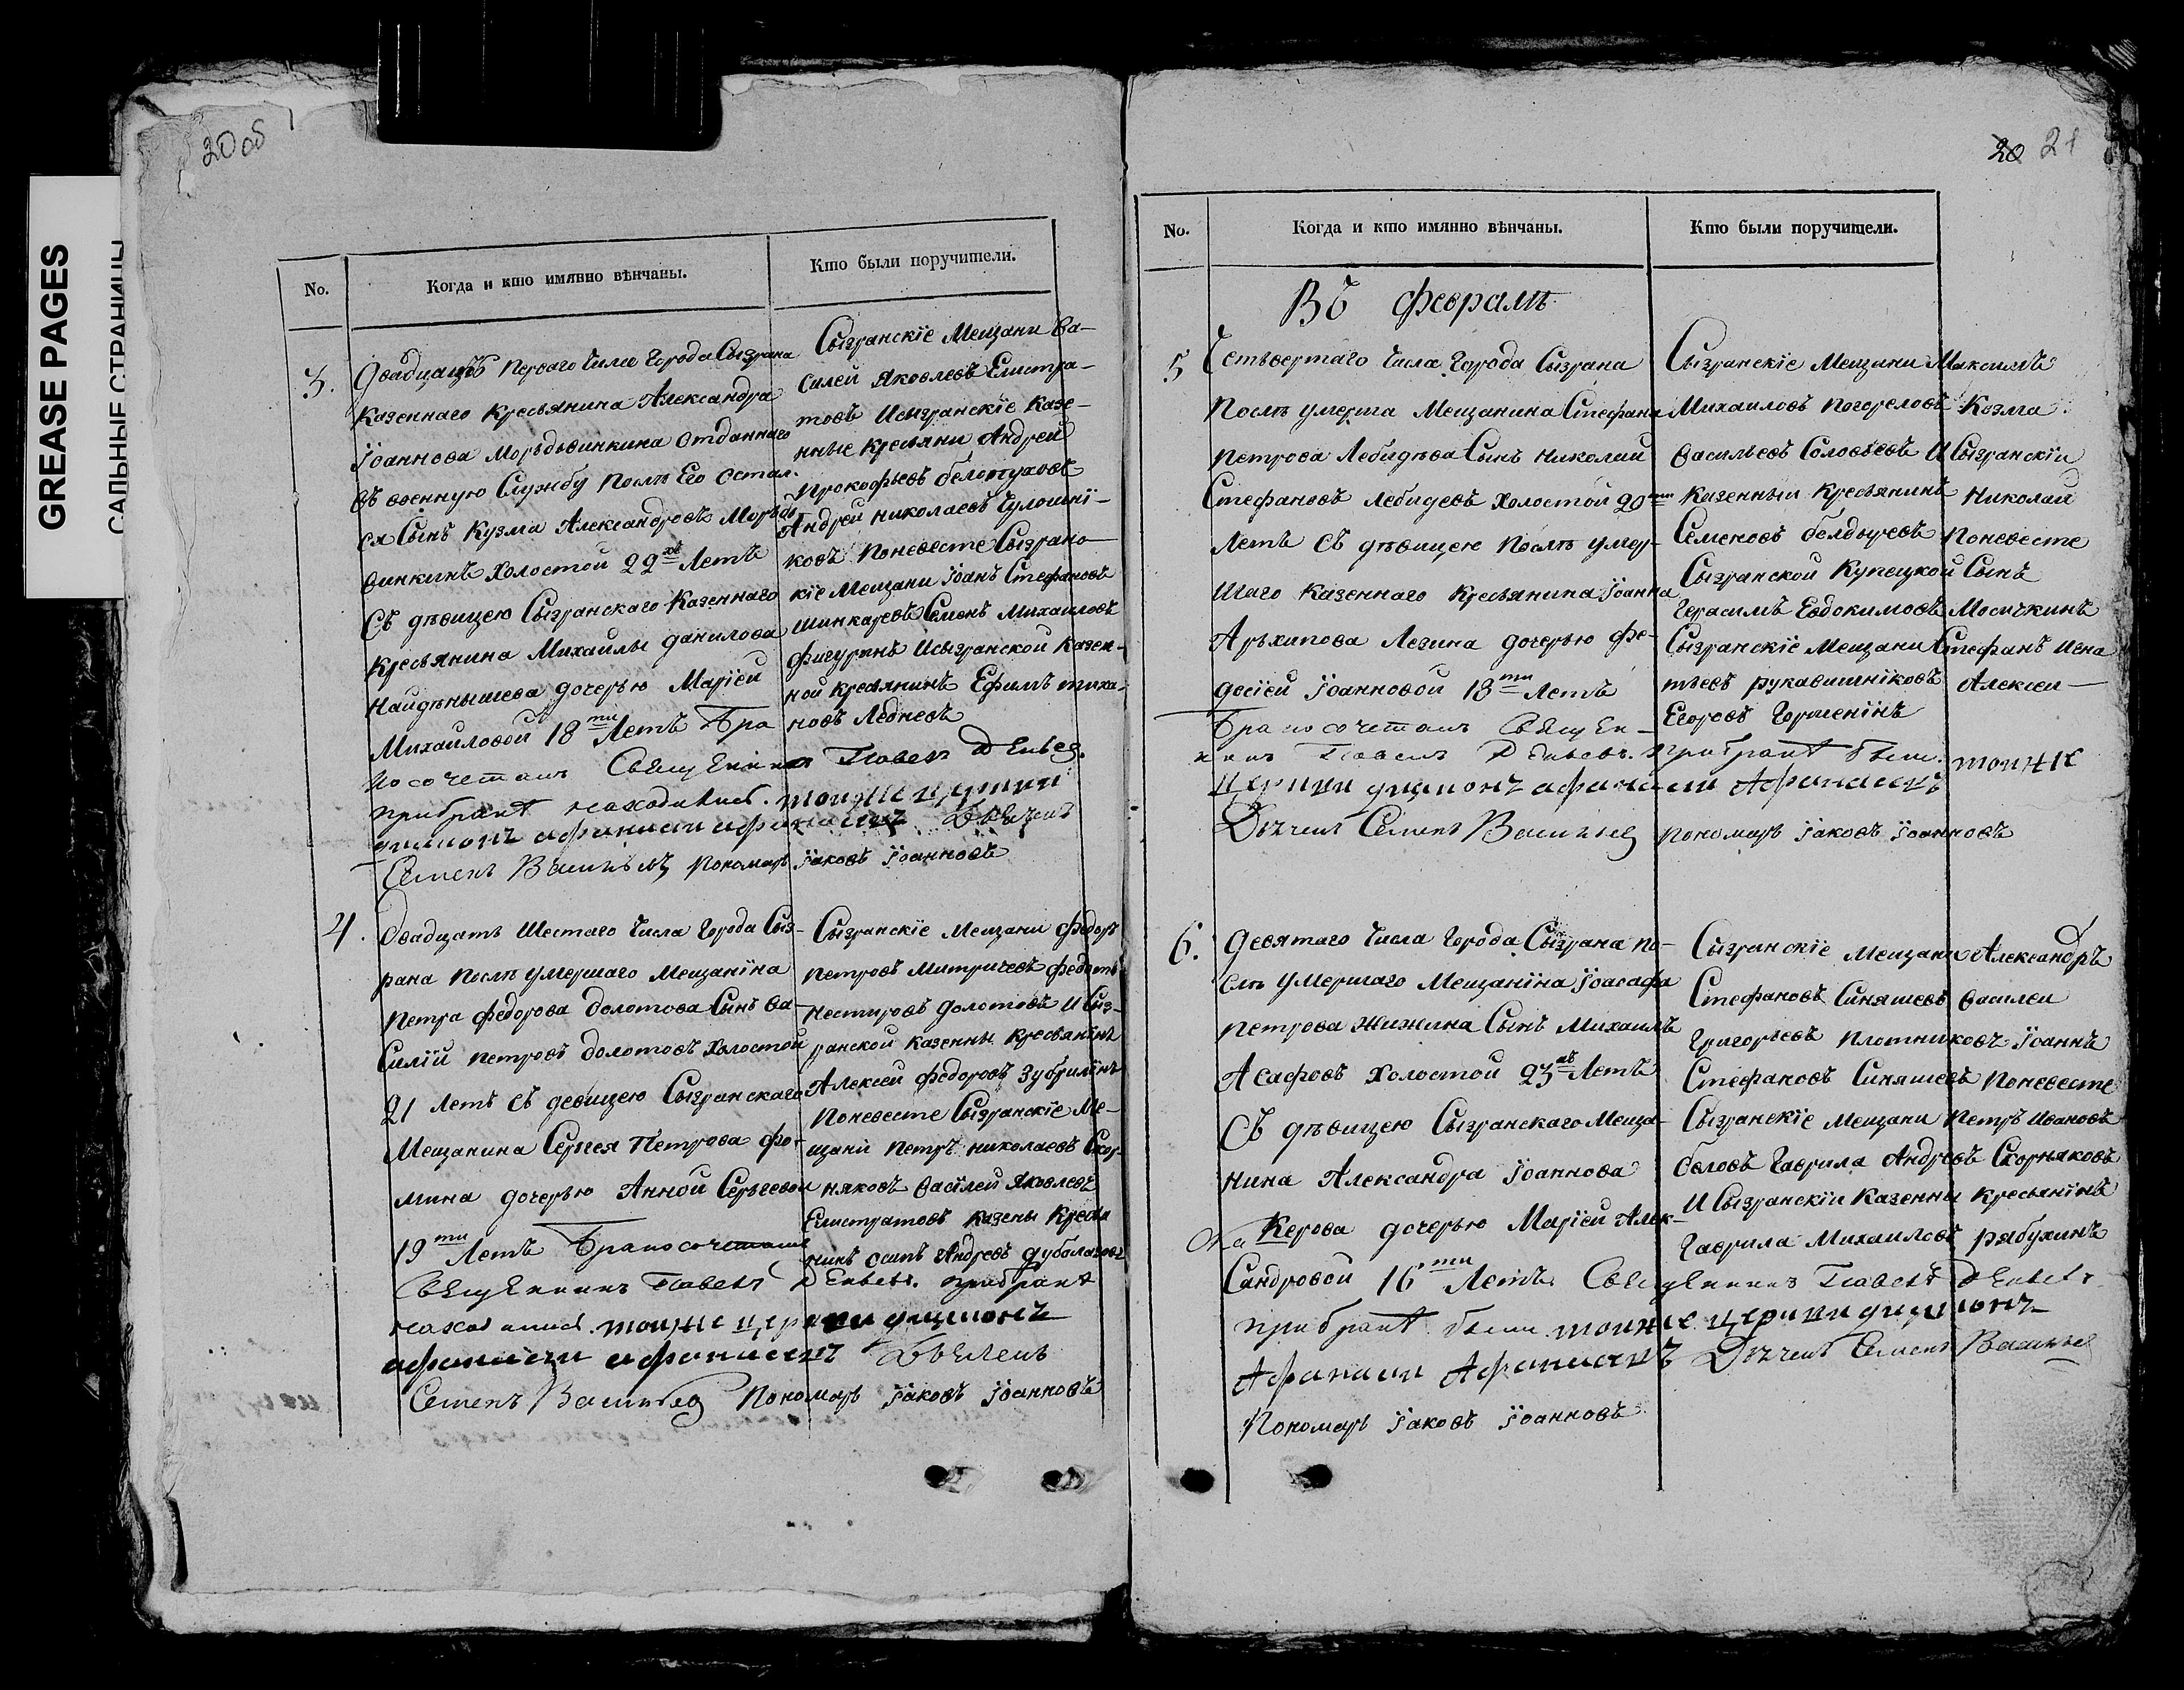 GREASE PAGES
САЛЬНЫЕ СТРАНИЦЫ
20 об
No.
Когда и кто имянно вѣнчаны.
Кто были поручители.
3.
Двадцать Перваго Числа Города Сызрана
Казеннаго Кресьянина Александра
Іоаннова Морьдьвинкина отданнаго
въ военную Службу Послѣ Его остал-
ся Сынъ Кузма Александровъ Морьдь
винкинъ Холостой 22хъ Летъ
Съ дѣвицею Сызранскаго Казеннаго
Кресьянина Михаилы Данилова
Найдѣнышева дочерью Маріей
Михайловой 18ти Летъ Бра
косочеталъ Священникъ Павелъ
при бракѣ находились. тойже церкви
дияконъ афанасий афанасьевъ Дьячекъ
Семенъ Васильевъ Пономарь Іаковъ Іоанновъ
Сызранскіе Мещани Ва-
силей Яковлевъ Елистра-
товъ Исызранскіе Казе-
нные Кресьяни Андрей
Прокофьевъ белопуховъ
Андрей Николаевъ
ковъ Поневесте Сызранс
кіе Мещани Іоанъ Стефановъ
Шинкаревъ Семенъ Михаиловъ
Фигуринъ Исызранской Казен-
ной Кресьянинъ Ефимъ Тиха-
новъ Ледневъ
4.
Двадцать Шестаго Числа Города Сыз-
рана Послѣ умершаго Мещаніна
Петра Федорова Долотова Сынъ Ва-
силій Петровъ Долотовъ Холостой
21 Летъ Съ девицею Сызранскаго
Мещанина Сергея Петрова Фо-
мина дочерью Анной Сергеевой
19ти Летъ Бракосочеталъ
Священникъ Павелъ при бракѣ
находились. тойже церкви дияконъ
афанасий афанасьевъ Дьячекъ
Семенъ Васильевъ Пономарь Іаковъ Іоанновъ
Сызранскіе Мещани Федоръ
Петровъ Митричевъ Федотъ
Нестировъ Долотовъ И Сыз-
ранской Казенны Кресьянінъ
Алексей Федоровъ Зубрилінъ
Поневесте Сызранскіе Ме-
щані Петръ Николаевъ Скор-
няковъ Васілей Яковлевъ
Елистратовъ Казены Кресья
нинъ осипъ Андревъ
20 21
No.
Когда и кто имянно вѣнчаны.
Кто были поручители.
Въ Февралѣ
5
Четьвертаго Числа Города Сызрана
Послѣ умерша Мещанина Стефана
Петрова Лебидѣва Сынъ Николай
Стефановъ Лебидевъ Холостой 20ти
Летъ Съ дѣвицею Послѣ умер-
шаго Казеннаго Кресьянина Іоанна
Арьхипова Лезина дочерью Фе-
досіей Іоанновой 18ти Летъ
Бракосочеталъ Священ-
никъ Павелъ при бракѣ были. тойже
церкви дияконъ афанасий Афанасьевъ
Дьячекъ Семенъ Васильевъ Пономарь Іаковъ Іоанновъ
Сызранскіе Мещани Максимъ
Михаиловъ Погореловъ Козма
Васильевъ Соловьевъ И Сызранскій
Казенный Кресьянинъ Николай
Семеновъ Болдыревъ Поневесте
Сызранской Купецкой Сынъ
Герасимъ Евдокимовъ Мосичкинъ
Сызранскіе Мещани Стефанъ Игна
тьевъ рукавишніковъ Алексей
Егоровъ Горшенінъ
6.
Девятаго Числа Города Сызрана по-
слѣ умершаго Мещаніна Іоасафа
Петрова Жижина Сынъ Михаилъ
Асафовъ Холостой 23хъ Летъ
Съ дѣвицею Сызранскаго Меща-
нина Александра Іоаннова
Керова дочерью Маріей Алек-
сандровой 16ти Летъ Священникъ Павелъ
при бракѣ были тойже церкви дияконъ
Афанасий Афанасьевъ Дьячекъ Семенъ Васильев
Пономарь Іаковъ Іоанновъ
Сызранскіе Мещани Александръ
Стефановъ Синяшевъ Василей
Григорьевъ Плотниковъ Іоаннъ
Стефановъ Синяшевъ Поневесте
Сызранскіе Мещани Петръ Ивановъ
беловъ Гаврила Андревъ Скорняковъ
И Сызранскій Казенны Кресьянінъ
Гаврила Михаиловъ рябухинъ